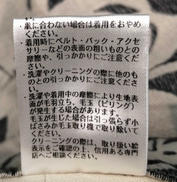 ・肌に合わない場合は着用をおやめ
ください。
・着用時にベルト・バック・アクセ
サリーなどの表面の粗いものとの
摩擦や、引っかかりにご注意くだ
さい。
・洗濯やクリーニングの際に他のも
のとの引っかかりにご注意くださ
い。
・洗濯や着用中の摩擦により生地表
面が毛羽立ち、毛玉（ピリング）
が発生する場合があります。
もし毛玉が生じた場合は引っ張らずハ
サミか毛玉取り機で取り除いて
ください。
・クリーニングの際は、取り扱い絵
表示をご確認の上、信用ある専門
店へご相談ください。